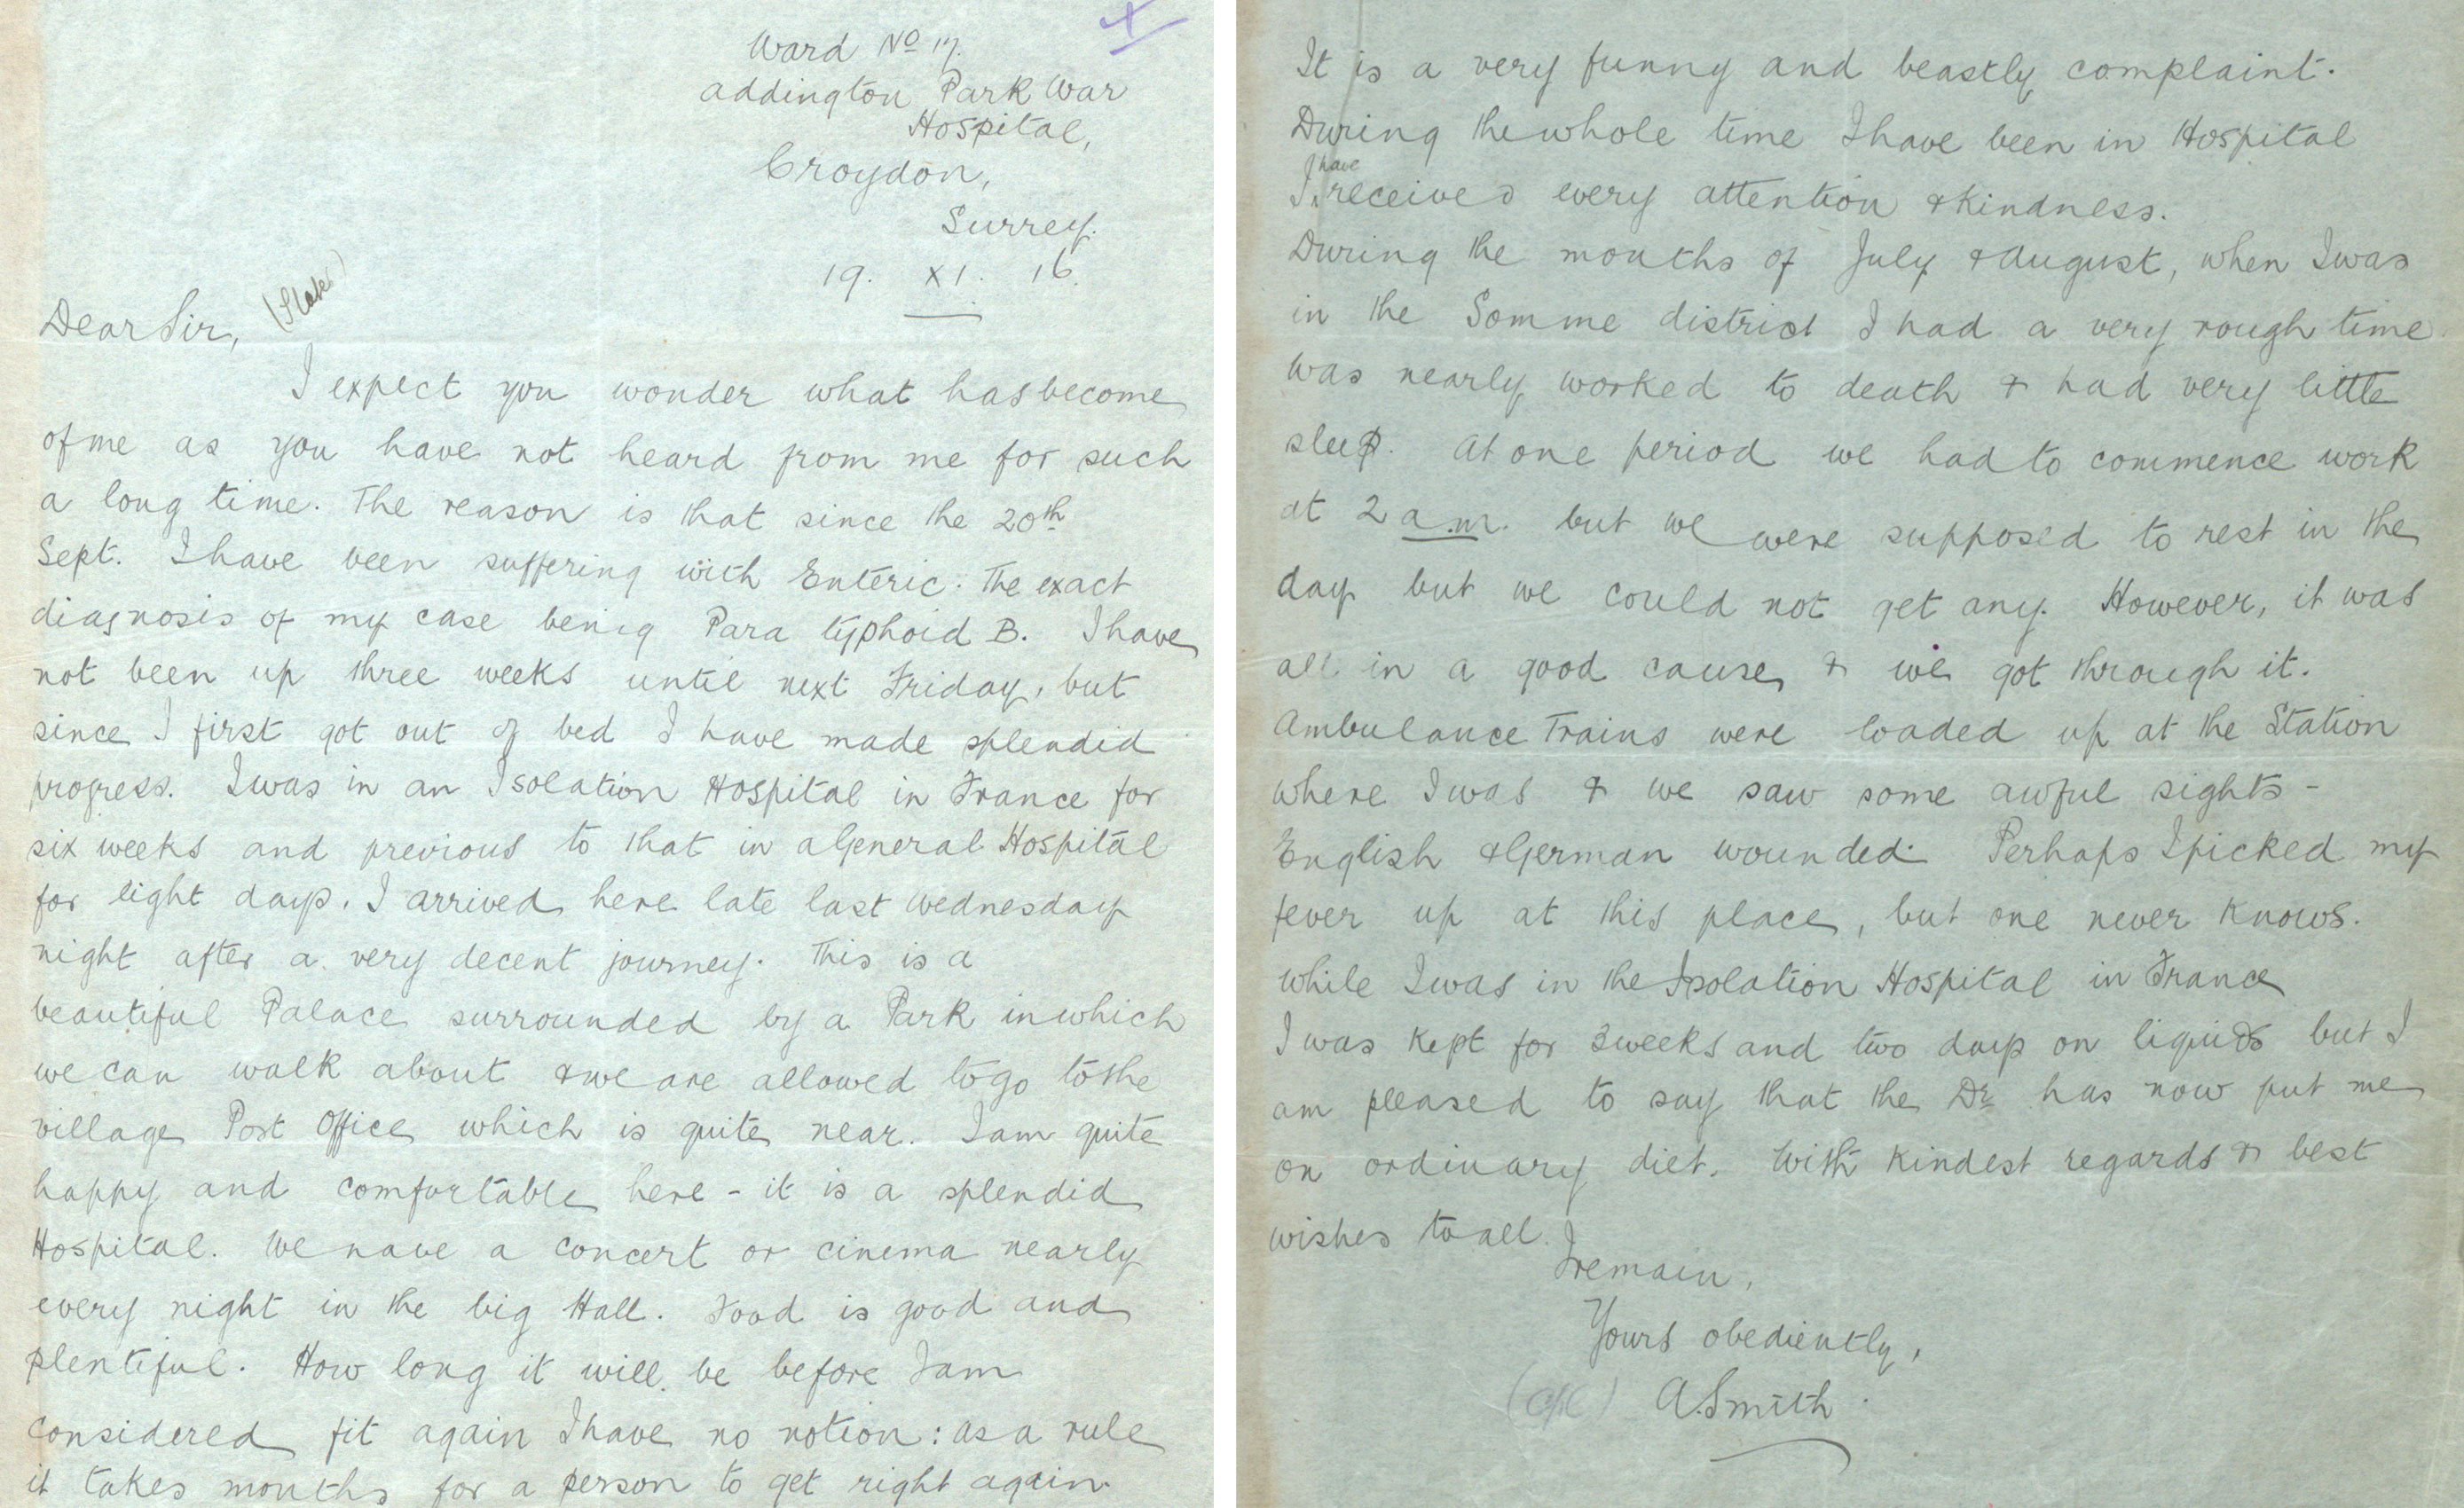 Ward No 17.
Addington Park War
Hospital,
Croydon,
Surrey.
19. XI. 16.
Dear Sir, (Slade)
I expect you wonder what has become
of me as you have not heard from me for such
a long time. The reason is that since the 20th
Sept. I have been suffering with Enteric. The exact
diagnosis of my case being Para typhoid B. I have
not been up three weeks until next Friday, but
since I first got out of bed I have made splendid
progress. I was in an Isolation Hospital in France for
six weeks and previous to that in a General Hospital
for eight days. I arrived here late last Wednesday
night after a very decent journey. This is a
beautiful Palace surrounded by a Park in which
we can walk about & we are allowed to go to the
village Post Office which is quite near. I am quite
happy and comfortable here - it is a splendid
Hospital. We have a concert or cinema nearly
every night in the big Hall. Food is good and
plentiful. How long it will be before I am
considered fit again I have no notion: as a rule
it takes months for a person to get right again.
It is a very funny and beastly complaint.
During the whole time I have been in Hospital
I have received every attention & kindness.
During the months of July & August, when I was
in the Somme district I had a very rough time
was nearly worked to death & had very little
sleep. At one period we had to commence work
at 2 a.m. but we were supposed to rest in the
day but we could not get any. However, it was
all in a good cause & we got through it.
Ambulance Trains were loaded up at the Station
where I was & we saw some awful sights -
English & German wounded. Perhaps I picked my
fever up at this place, but one never knows.
While I was in the Isolation Hospital in France
I was kept for 3 weeks and two days on liquids but I
am pleased to say that the Dr has now put me
on ordinary diet. With kindest regards & best
wishes to all.
I remain,
Yours obediently,
A. Smith.